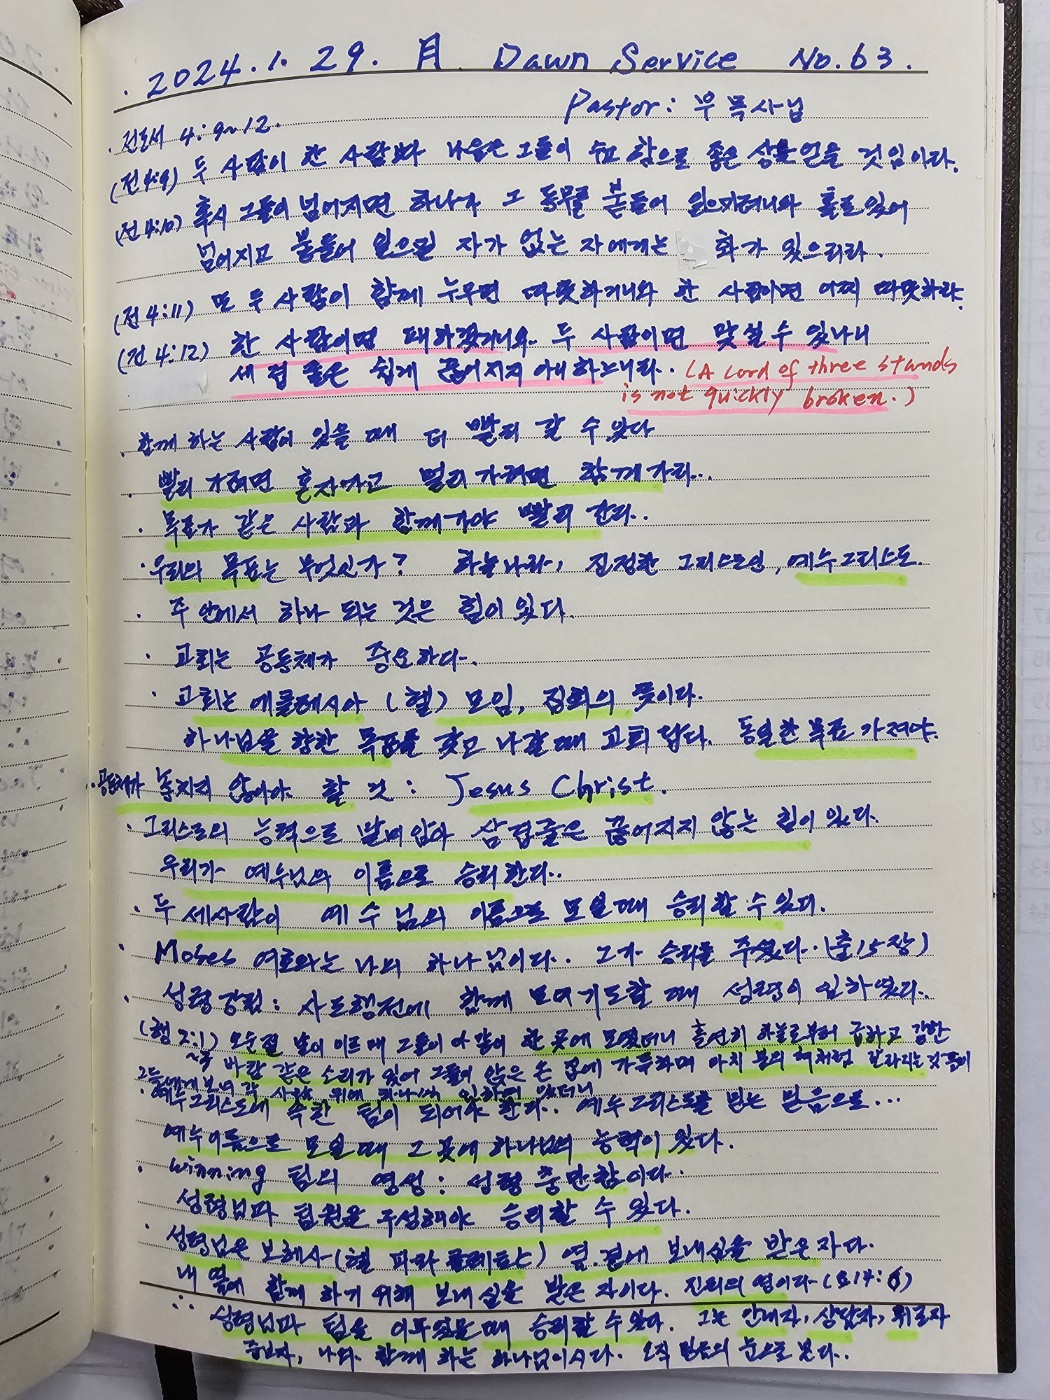 2024.1.29. 月 Dawn Service No.63.
Pastor: 부목사님
전도서 4:9~12.
(전4:9) 두 사람이 한 사람보다 나음은 그들이 수고함으로 좋은 상을 얻을 것임이라.
(전4:10) 혹시 그들이 넘어지면 하나가 그 동무를 붙들어 일으키려니와 홀로 있어
넘어지고 붙들어 일으킬 자가 없는 자에게는 화가 있으리라.
(전4:11) 또 두 사람이 함께 누우면 따뜻하거니와 한 사람이면 어찌 따뜻하랴.
(전4:12) 한 사람이면 패하겠거니와 두 사람이면 맞설 수 있나니
세 겹 줄은 쉽게 끊어지지 아니하느니라. (A cord of three stands
is not quickly broken.)
· 함께 하는 사람이 있을 때 더 빨리 갈 수 있다
· 빨리 가려면 혼자가고 멀리 가려면 함께 가라..
· 목표가 같은 사람과 함께 가야 빨리 간다..
· 우리의 목표는 무엇인가? 하늘나라, 진정한 그리스도인, 예수그리스도.
· 주 안에서 하나 되는 것은 힘이 있다.
· 교회는 공동체가 중요하다.
· 교회는 에클레시아 (헬) 모임, 집회의 뜻이다.
하나님을 향한 목표를 갖고 나갈 때 교회 답다. 동일한 목표 가져야.
· 공동체가 놓치지 않아야 할 것: Jesus Christ.
· 그리스도의 능력으로 말미암아 삼겹줄은 끊어지지 않는 힘이 있다.
우리가 예수님의 이름으로 승리한다..
· 두 세사람이 예수님의 이름으로 모일 때 승리할 수 있다.
· Moses 여호와는 나의 하나님이다.. 그가 승리를 주셨다..(출15장)
· 성령강림: 사도행전에 함께 모여기도할 때 성령이 임하였다..
(행 2:1) 오순절 날이 이르매 그들이 다 같이 한 곳에 모였더니 홀연히 하늘로부터 급하고 강한
바람 같은 소리가 있어 그들이 앉은 온 집에 가득하며 마치 불의 혀처럼 갈라지는 것들이
그들에게 보여 각 사람 위에 하나씩 임하여 있더니
· 예수그리스도께 속한 팀이 되어야 한다.. 예수그리스도를 믿는 믿음으로...
예수이름으로 모일 때 그 곳에 하나님의 능력이 있다.
· winning 팀의 영성: 성령 충만함이다.
성령님과 팀원을 구성해야 승리할 수 있다.
· 성령님은 보혜사(헬 파라클레토스) 옆.곁에 보내심을 받은 자다.
내 옆에 함께 하기 위해 보내심을 받은 자이다. 진리의 영이다 (요14:6)
∴ 성령님과 팀을 이루었을 때 승리할 수 있다. 그는 안내자, 상담자, 위로자
중보자, 나와 함께 하는 하나님이시다. 오직 믿음의 눈으로 본다..